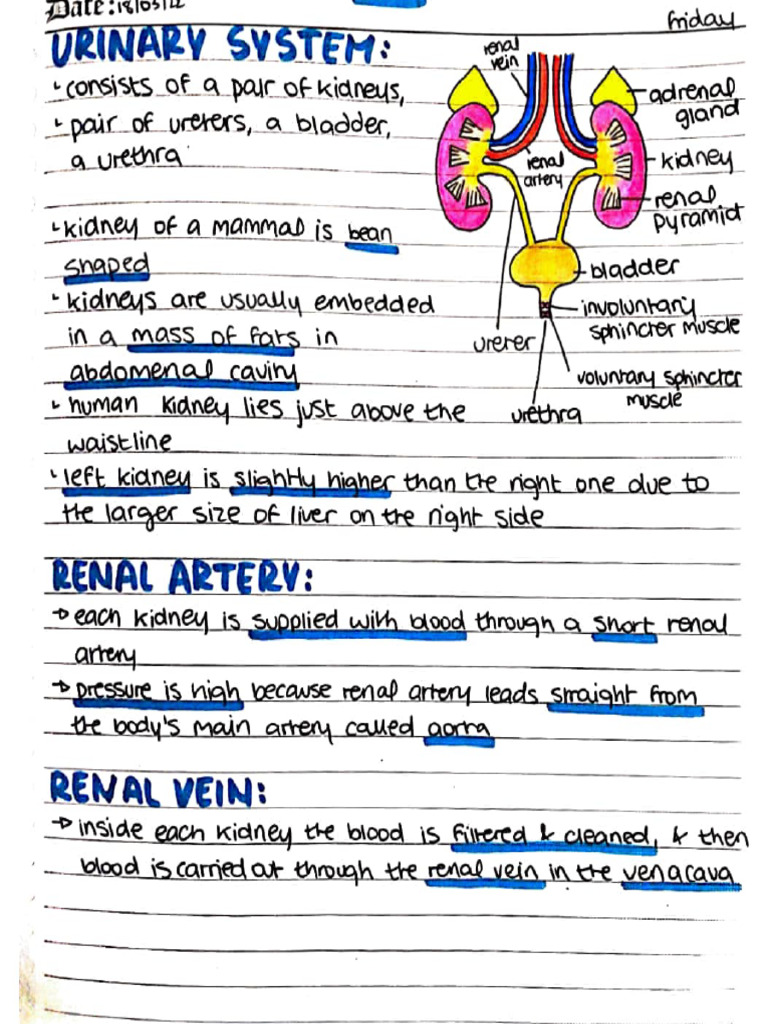 Date: 18/03/22
friday
URINARY SYSTEM:
consists of a pair of kidneys,
pair of ureters, a bladder,
a urethra
renal
vein
adrenal
gland
renal
artery
kidney
renal
pyramid
bladder
involuntary
sphincter muscle
ureter
voluntary sphincter
muscle
urethra
kidney of a mammal is bean
shaped
kidneys are usually embedded
in a mass of fats in
abdomenal cavity
human kidney lies just above the
waistline
left kidney is slightly higher than the right one due to
the larger size of liver on the right side
RENAL ARTERY:
→ each kidney is supplied with blood through a short renal
artery
→ pressure is high because renal artery leads straight from
the body's main artery called aorta
RENAL VEIN:
→ inside each kidney the blood is filtered & cleaned, & then
blood is carried out through the renal vein in the venacava